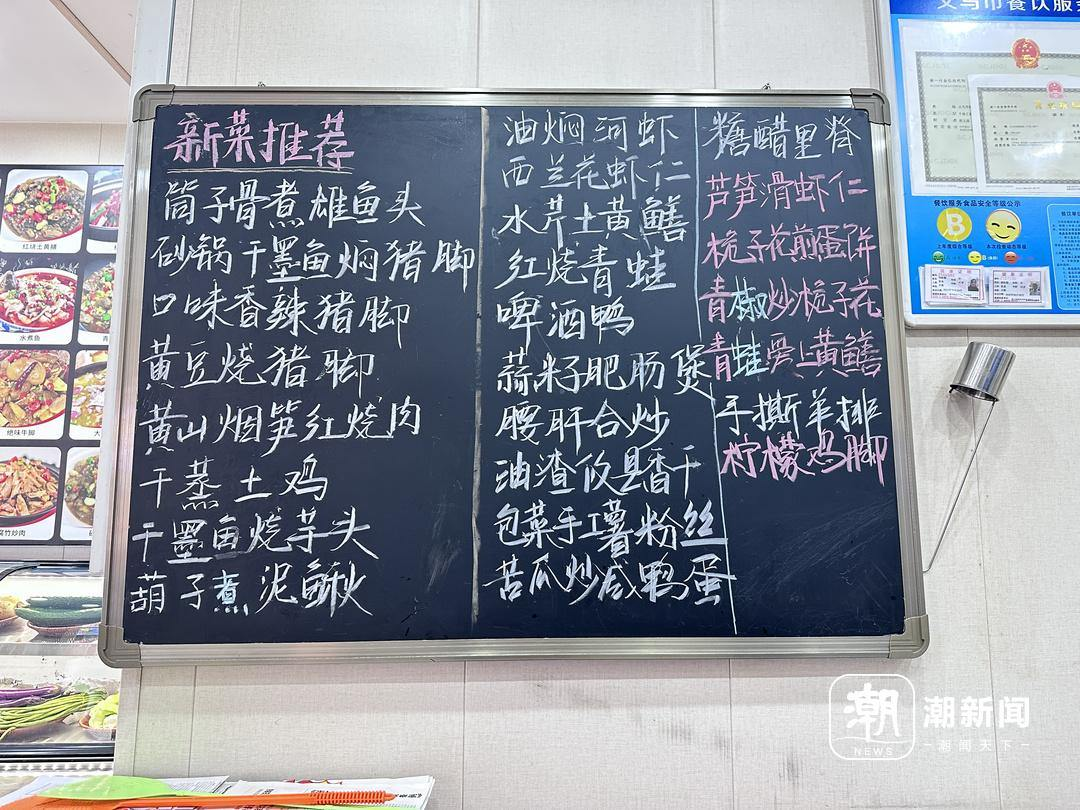 新菜推荐
筒子骨煮雄鱼头
砂锅干墨鱼焖猪脚
口味香辣猪脚
黄豆烧猪脚
黄山烟笋红烧肉
干蒸土鸡
干墨鱼烧芋头
葫子煮泥鳅
油焖河虾
西兰花虾仁
水芹土黄鳝
红烧青蛙
啤酒鸭
蒜籽肥肠煲
腰肝合炒
油渣攸县香干
包菜手工薯粉丝
苦瓜炒咸鸭蛋
糖醋里脊
芦笋滑虾仁
栀子花煎蛋饼
青椒炒栀子花
青蛙爱上黄鳝
手撕羊排
柠檬鸡脚
红烧土黄鳝
水煮鱼
绝味牛脚
腐竹炒肉
义乌市餐饮服务
餐饮服务食品安全等级公示
B
上年度综合等级
本次检查动态等级
潮
NEWS
潮新闻
潮闻天下